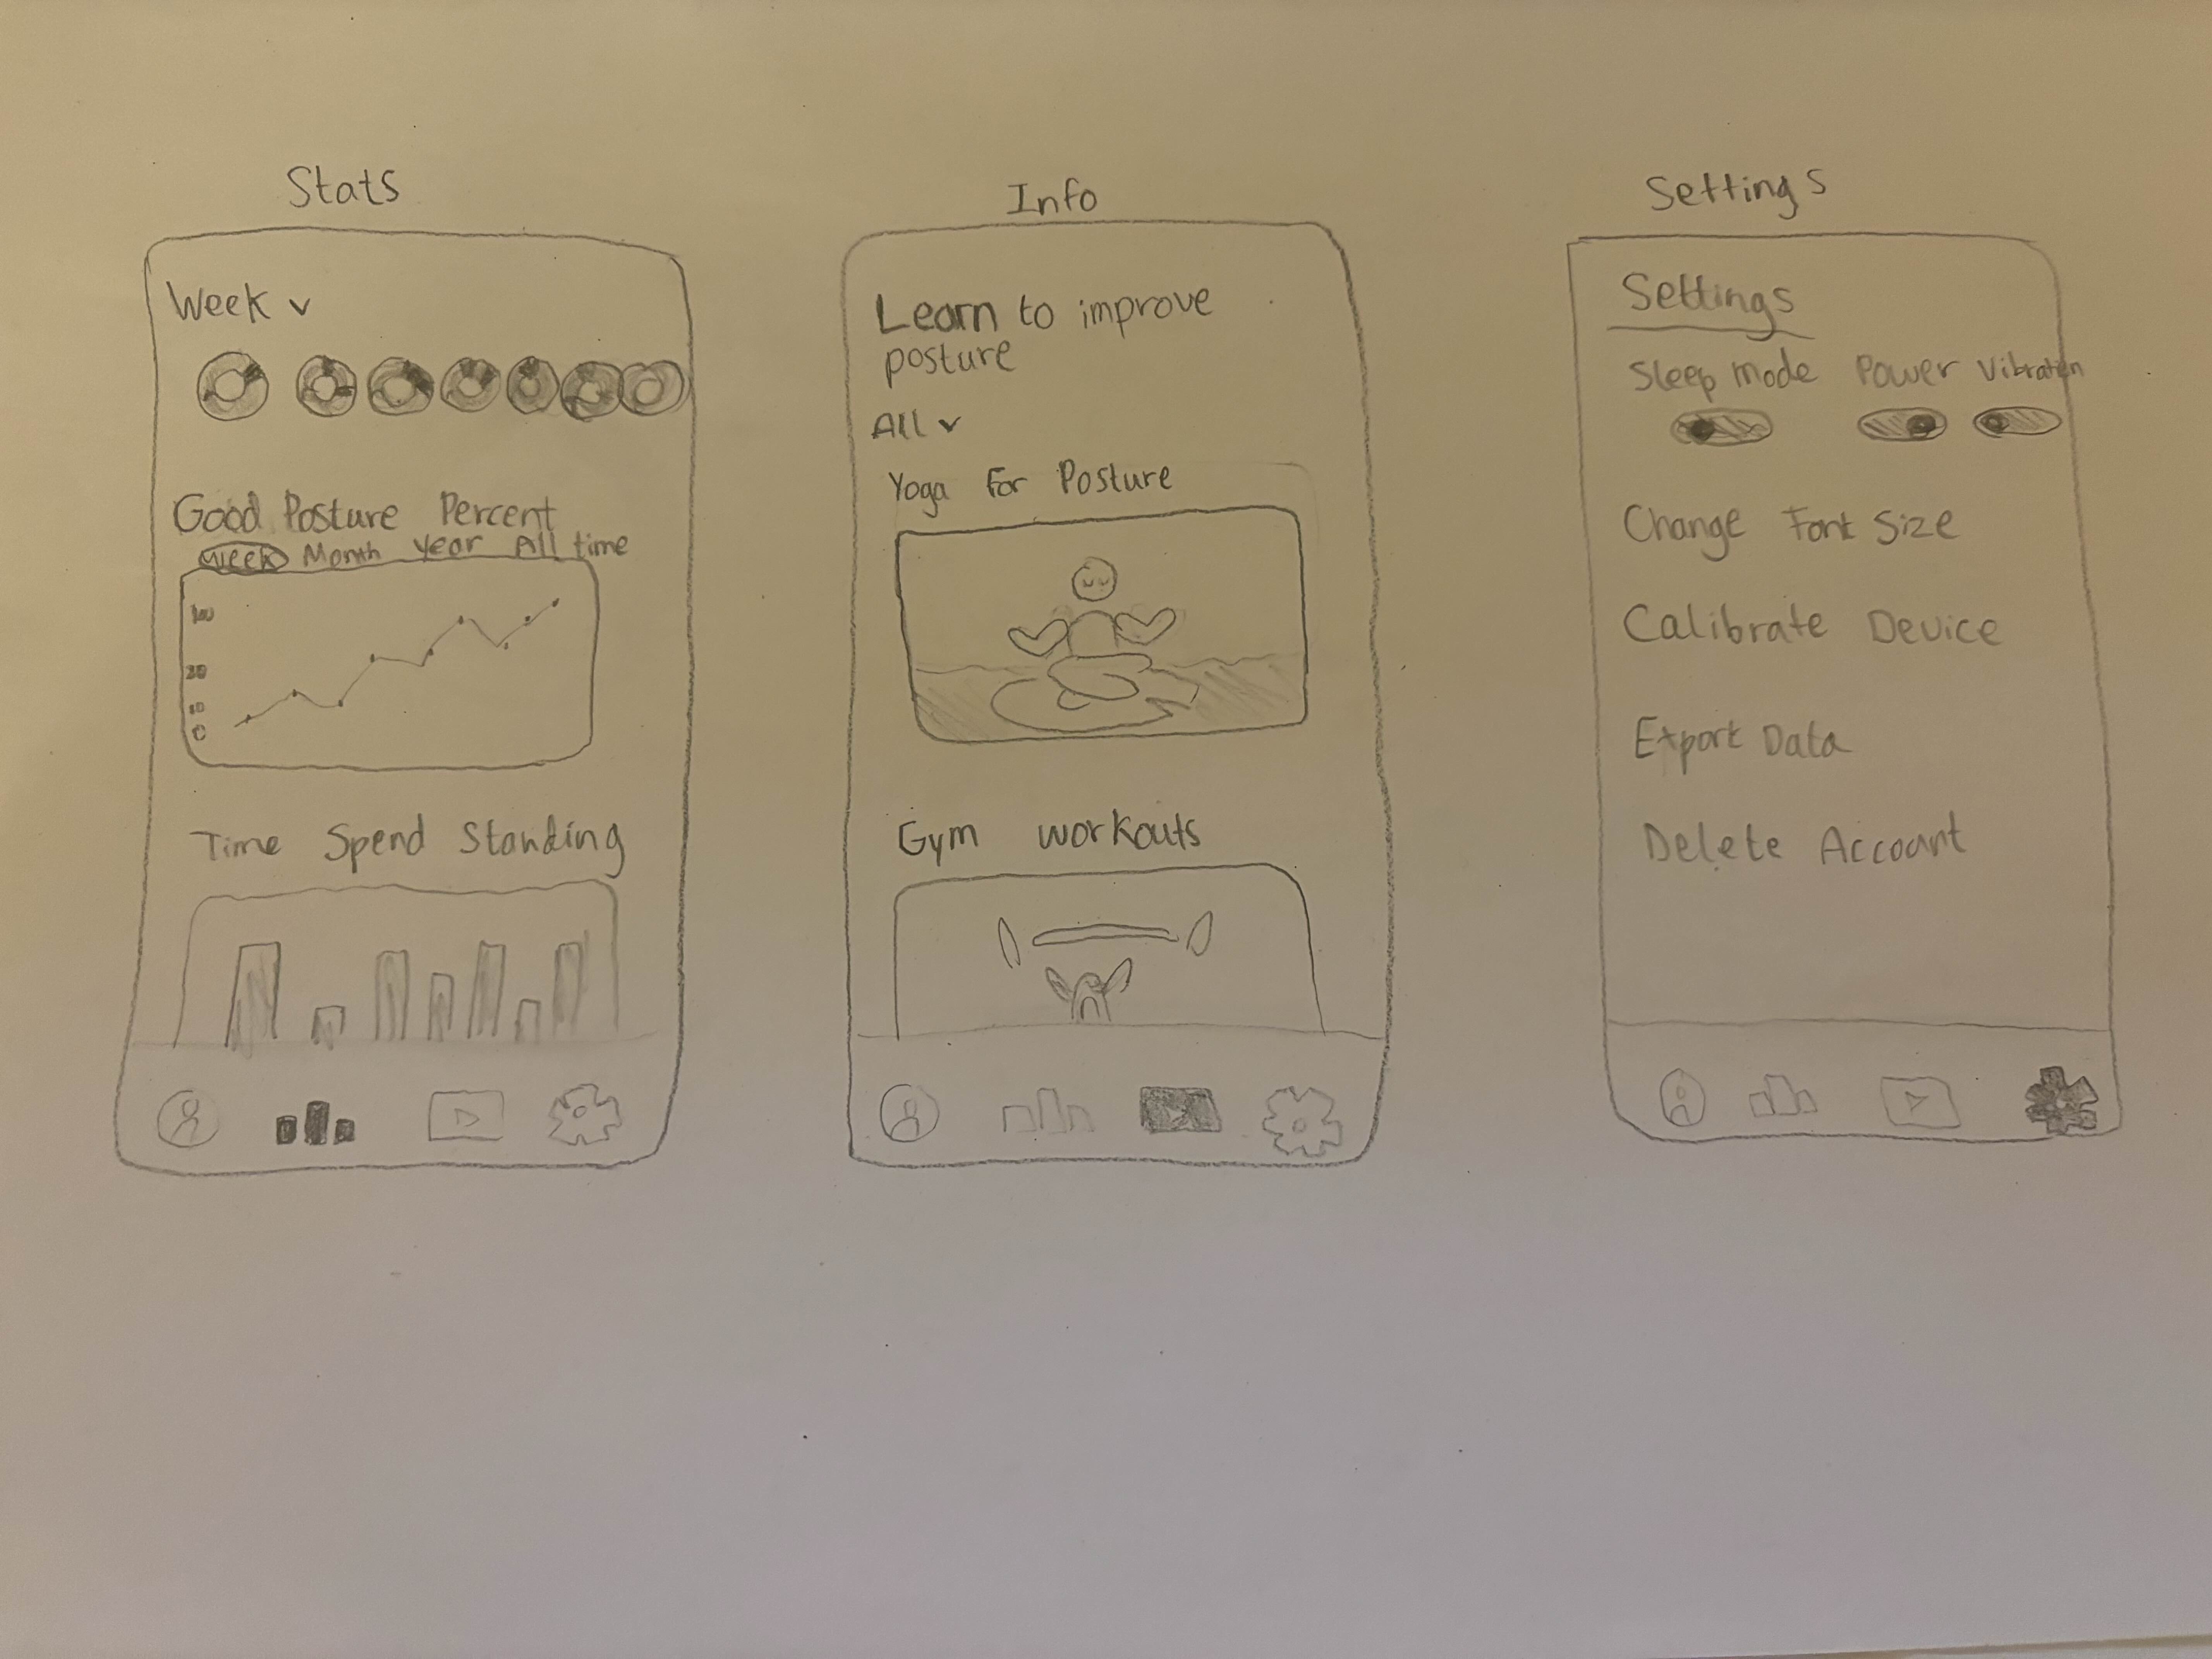 Stats
Week v
Good Posture Percent
Week Month Year All time
100
20
10
0
Time Spend Standing
Info
Learn to improve
posture
All v
Yoga For Posture
Gym workouts
Settings
Settings
Sleep Mode Power Vibration
Change Font Size
Calibrate Device
Export Data
Delete Account